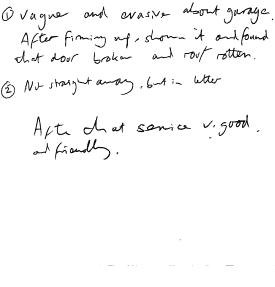 ① Vague and evasive about garage.
After firming up, shown it and found
that door broken and roof rotten.
② Not straight away, but in letter
After that service v. good.
and friendly.